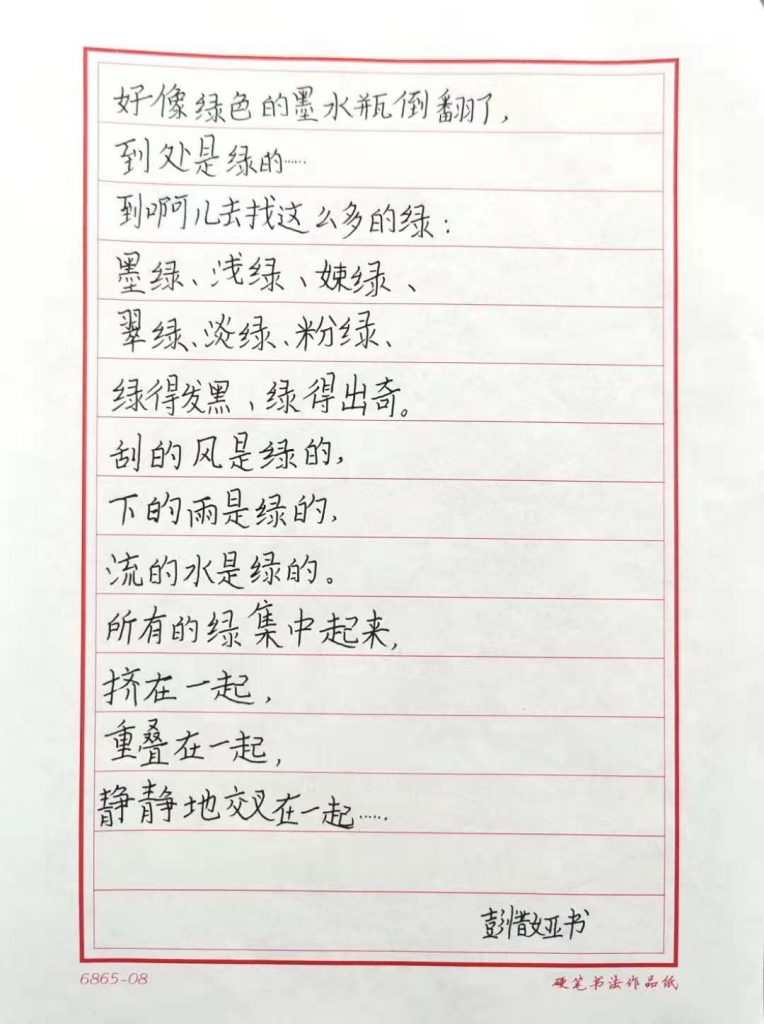 好像绿色的墨水瓶倒翻了，
到处是绿的……
到啊儿去找这么多的绿：
墨绿、浅绿、娕绿、
翠绿、淡绿、粉绿、
绿得发黑、绿得出奇。
刮的风是绿的，
下的雨是绿的，
流的水是绿的。
所有的绿集中起来，
挤在一起，
重叠在一起，
静静地交叉在一起……
彭惜文亚书
6865-08
硬笔书法作品纸